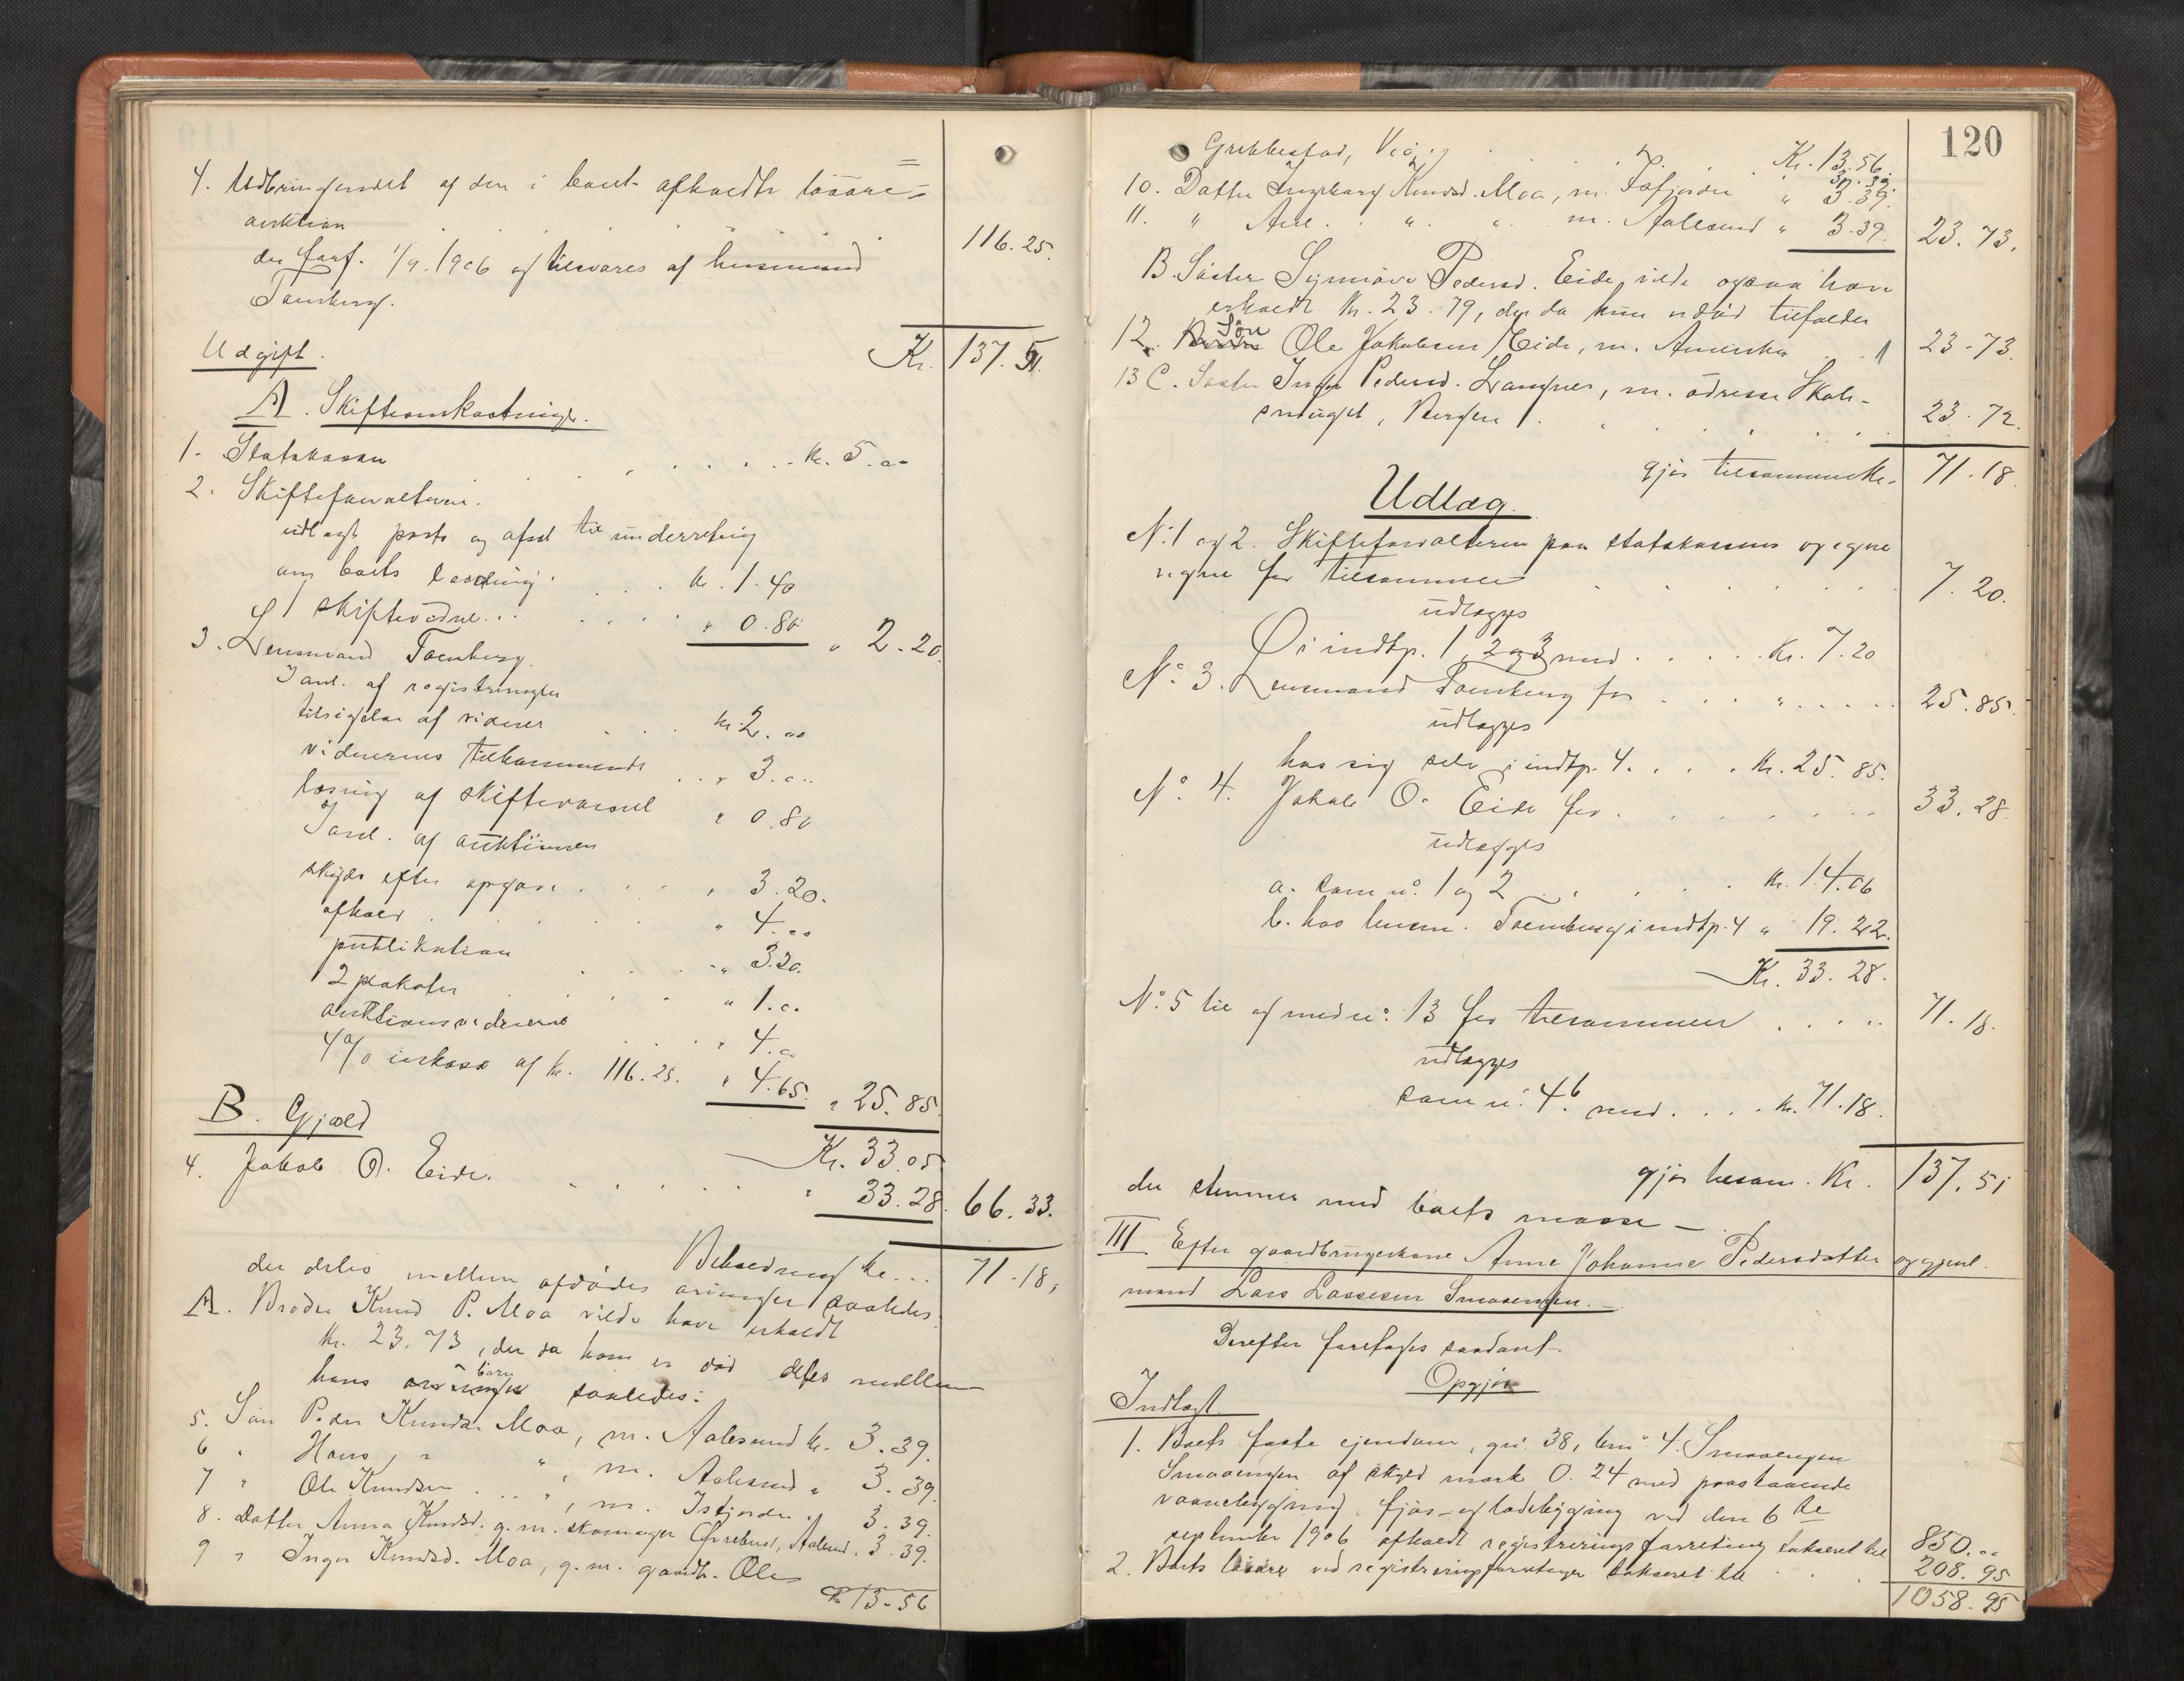 4. Udbringendet af den i boet afholdte løsøre=
auktion . . . . . 116.25.
der forf. 1/9.1906 og tilsvares af lensmand
Toenberg.
Kr. 137.51.
Udgift.
A. Skifteomkostninger.
1. Statskassen . . . . . Kr. 5.00
2. Skifteforvalteren.
udlagt porto og afsd til underretning
ang boets . . . kr. 1.40
skifte . . . " 0.80 " 2.20
3. Lensmand Toenberg.
Taxt. af registreringen
tilsigelse af vidner . . . kr. 2.00
vidnernes tilkommende . . " 3.00
løsning af skiftevarsel " 0.80
Taxt. af auktionen
skyds efter opgave . . . " 3.20.
afhold . . . " 4.00
publikation . . . " 3.20.
2 plakater . . . " 1.00
auktionsvidnerne . . . " 4.00
4 % inkasso af kr. 116.25. " 4.65. " 25.85.
Kr. 33.05
B. Gjæld
4. Jakob O. Eide. . . . . " 33.28. 66.33.
Beholdning kr... 71.18,
der deles mellem afdødes arvinger saaledes.
A. Broder Knud P. Moa vilde have erholdt
kr. 23.73, der da han er død deles mellem
hans børn saaledes:
5. Søn Peder Knudsen Moa, m. Aalesund kr. 3.39.
6 " Hans " " , m. Aalesund " 3.39.
7 " Ole Knudsen . . " , m. Isfjorden " 3.39.
8. Datter Anna Knudsd. g. m. skomager Aalesund. 3.39.
9 " Inger Knudsd. Moa, g. m. gaardb. Ole
Kr 13.56
120
Grebbestad, Veø . . . Kr. 13.56.
10. Datter Ingeborg Knudsd. Moa, m. Isfjorden " 3.39.
11. " Ane . . " . " . m. Aalesund " 3.39. 23.73.
B. Søster Synnøve Pedersd. Eide vilde ogsaa have
erholdt kr. 23.79, der da hun er død tilfalder
12. Søn Ole Jakobsen Eide, m. Amerika . . 23.73.
13 C. Søster Inger Pedersd. Langnes, m. adresse Skole-
smuget, Bergen . . . . . 23.72.
gjør tilsammen kr. 71.18.
Udlæg.
No. 1 og 2. Skifteforvalteren paa statskassens og egne
vegne for tilsammen . . . . . 7.20.
udlægges
i indtp. 1, 2 og 3 med . . . . kr. 7.20
No. 3. Lensmand Toenberg for . . . " . . . . 25.85.
udlægges
hos sig selv i indtp. 4. . . . kr. 25.85.
No. 4. Jakob O. Eide for . . . . . 33.28.
udlægges
a. som no. 1 og 2 . . . . kr. 14.06
b. hos lensm. Toenberg i indtp. 4 " 19.22.
Kr. 33.28.
No. 5 til og med no. 13 for tilsammen . . . . 71.18.
udlægges
som no. 4b med . . . . kr. 71.18.
gjør tilsam. Kr. 137.51
der stemmer med boets masse —
III. Efter gaardbrugerkone Anne Johanne Pedersdatter og gjenl.
mand Lars Lassesen Smaaengen.
Derefter foretages saadant
Opgjør
Indtægt.
1. Boets faste ejendom, gn. 38, bno. 4. Smaaengen
Smaaengen af skyld mark 0.24 med paastaaende
vaanebygning, fjøs- og ladebygning ved den 6te
september 1906 afholdt registreringsforretning takseret til 850.00
2. Boets løsøre ved registreringsforretningen takseret til . . 208.95
1058.95